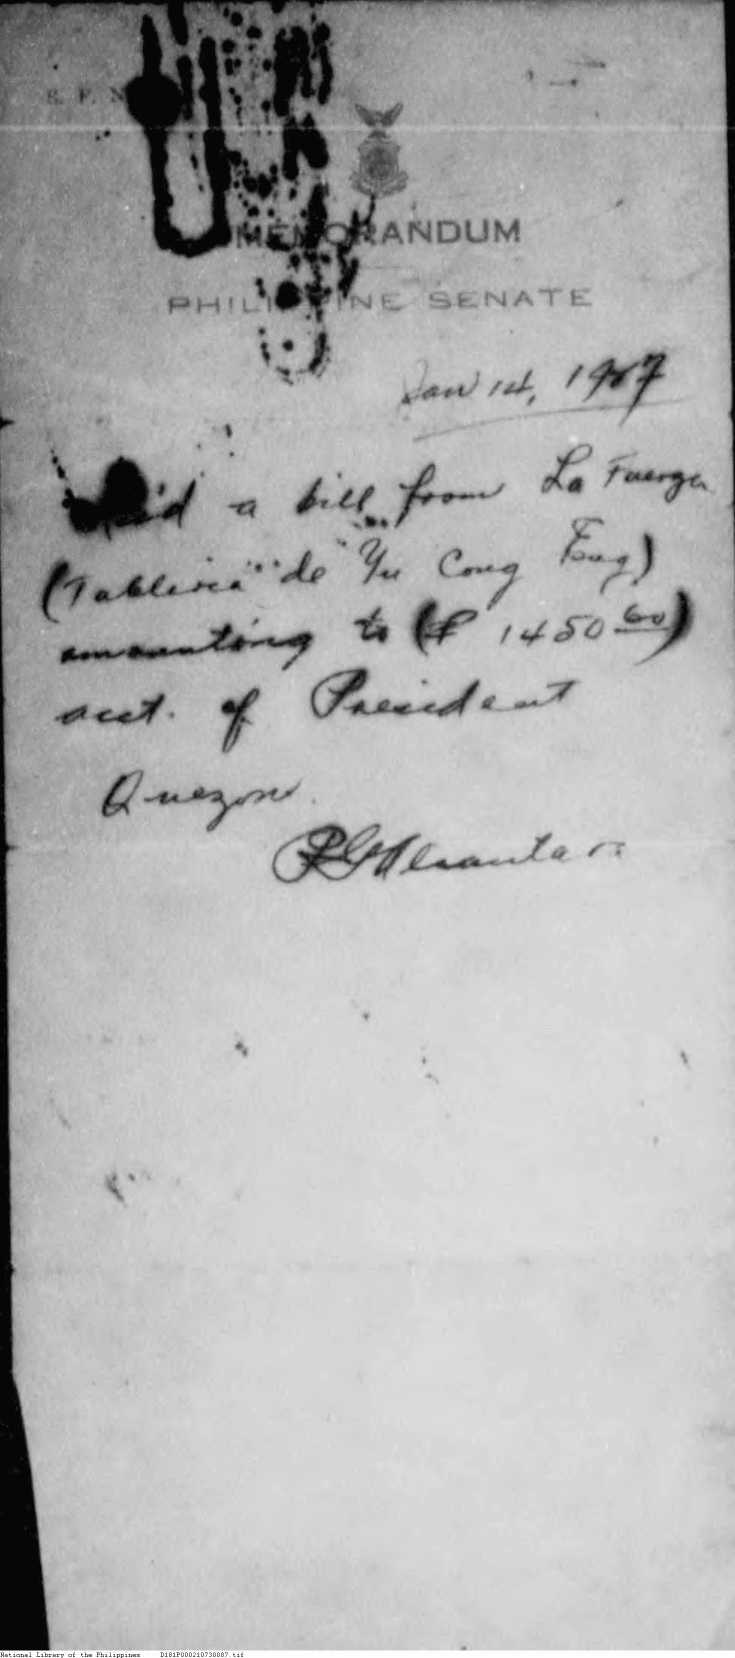 MEMORANDUM
PHILIPPINE SENATE
Jan 14, 1927
a bill from La Fuerza
(Tableria" de "Yu Cong Eng)
amounting to (₱ 1450 60)
acct. of President
Quezon.
National Library of the Philippines D181P000210730087.tif